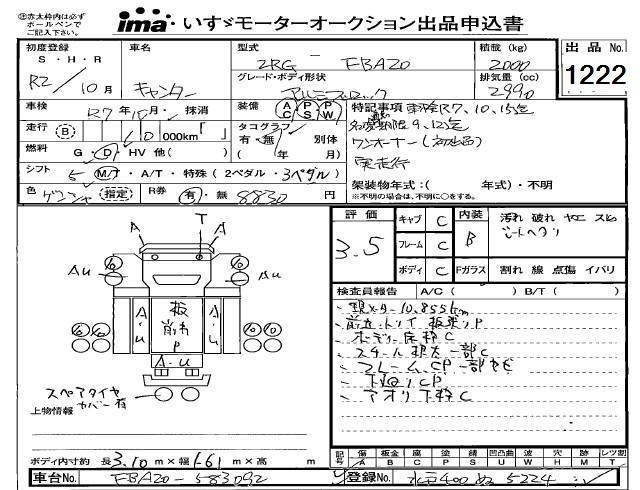 ㊟赤太枠内は必ず
ボールペンで
ご記入下さい。
ima いすゞモーターオークション出品申込書
初度登録 車名 型式 積載 (kg) 出品 No.
S・H・R 2RG FBA20 2000 1222
R2/10月 キャンター グレード・ボディ形状 排気量 (cc)
アルミブロック 2990
車検 R7年10月 抹消 装備 AC PS PW 特記事項 車検R7、10、15迄
走行 (B) 000km「 」 タコグラフ 名変期限9、12迄
有・無 別体 ワンオーナー(
燃料 G・D・HV 他( ) ( 年 月) 実走行
シフト 5 M/T・A/T・特殊(2ペダル・3ペダル) 架装物年式:( 年式)・不明
色 指定 R券 有・無 8830円 ※不明の場合は、不明に○をする。
評価 キャブ C 内装 汚れ 破れ ヤニ スレ
3.5 フレーム C B シートヘタリ
ボディ C Fガラス 割れ 線 点傷 イバリ
検査員報告 A/C( ) B/T( )
A T A
Au Au
板
A・u 前 P A・u
A・u
10,855km
板張りP
ボデー床枠C
スチール根太一部C
フレームCP一部サビ
下回りCP
アオリ下枠C
スペアタイヤ
カバー有
上物情報
ボディ内寸約 長3.10m×幅1.61m×高 m
記号 傷 板金 ボコ 塗 錆 凹凸曲 補 穴 跡 レツ割
A B C P S U W H M T
車台No. FBA20-583092 登録No. 水戸400 ぬ 5224